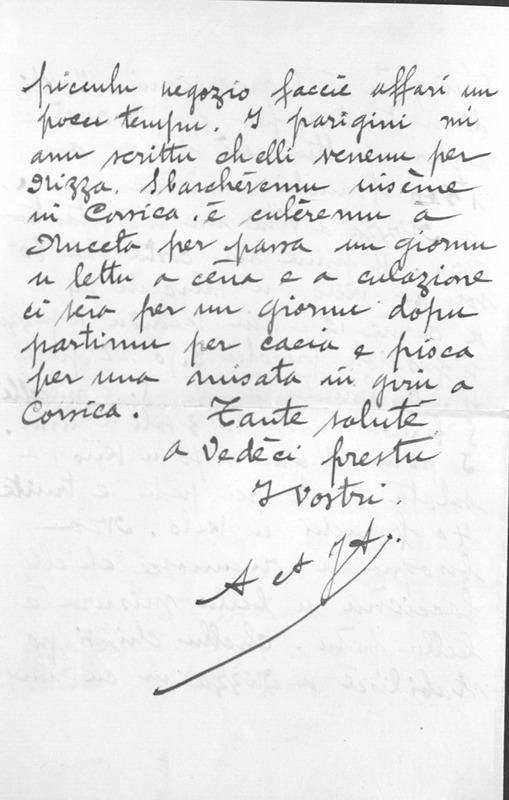 picculu negozio faccie affari un
poccu tempu. I parigini mi
anu scrittu chelli venenu per
Nizza. Sbarchèremu insème
in Corsica. è culèremu a
Muceta per passa un giornu
u lettu a cena e a culazione
ci sèra per un giornu dopu
partimu per cacia e pisca
per una misata in giru a
Corsica. Tante saluté
a Vedèci prestu
I Vostri.
A et JA.